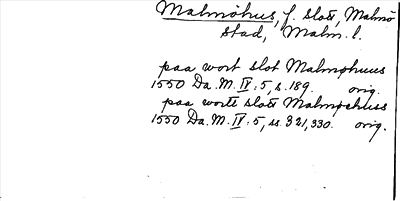 Malmöhus, f. slott, Malmö
stad, Malm. l.
paa wort slot Malmøhuus
1550 Da. M. IV: 5, s. 189. orig.
paa wortt slott Malmøehuss
1550 Da. M. IV: 5, ss. 321, 330. orig.